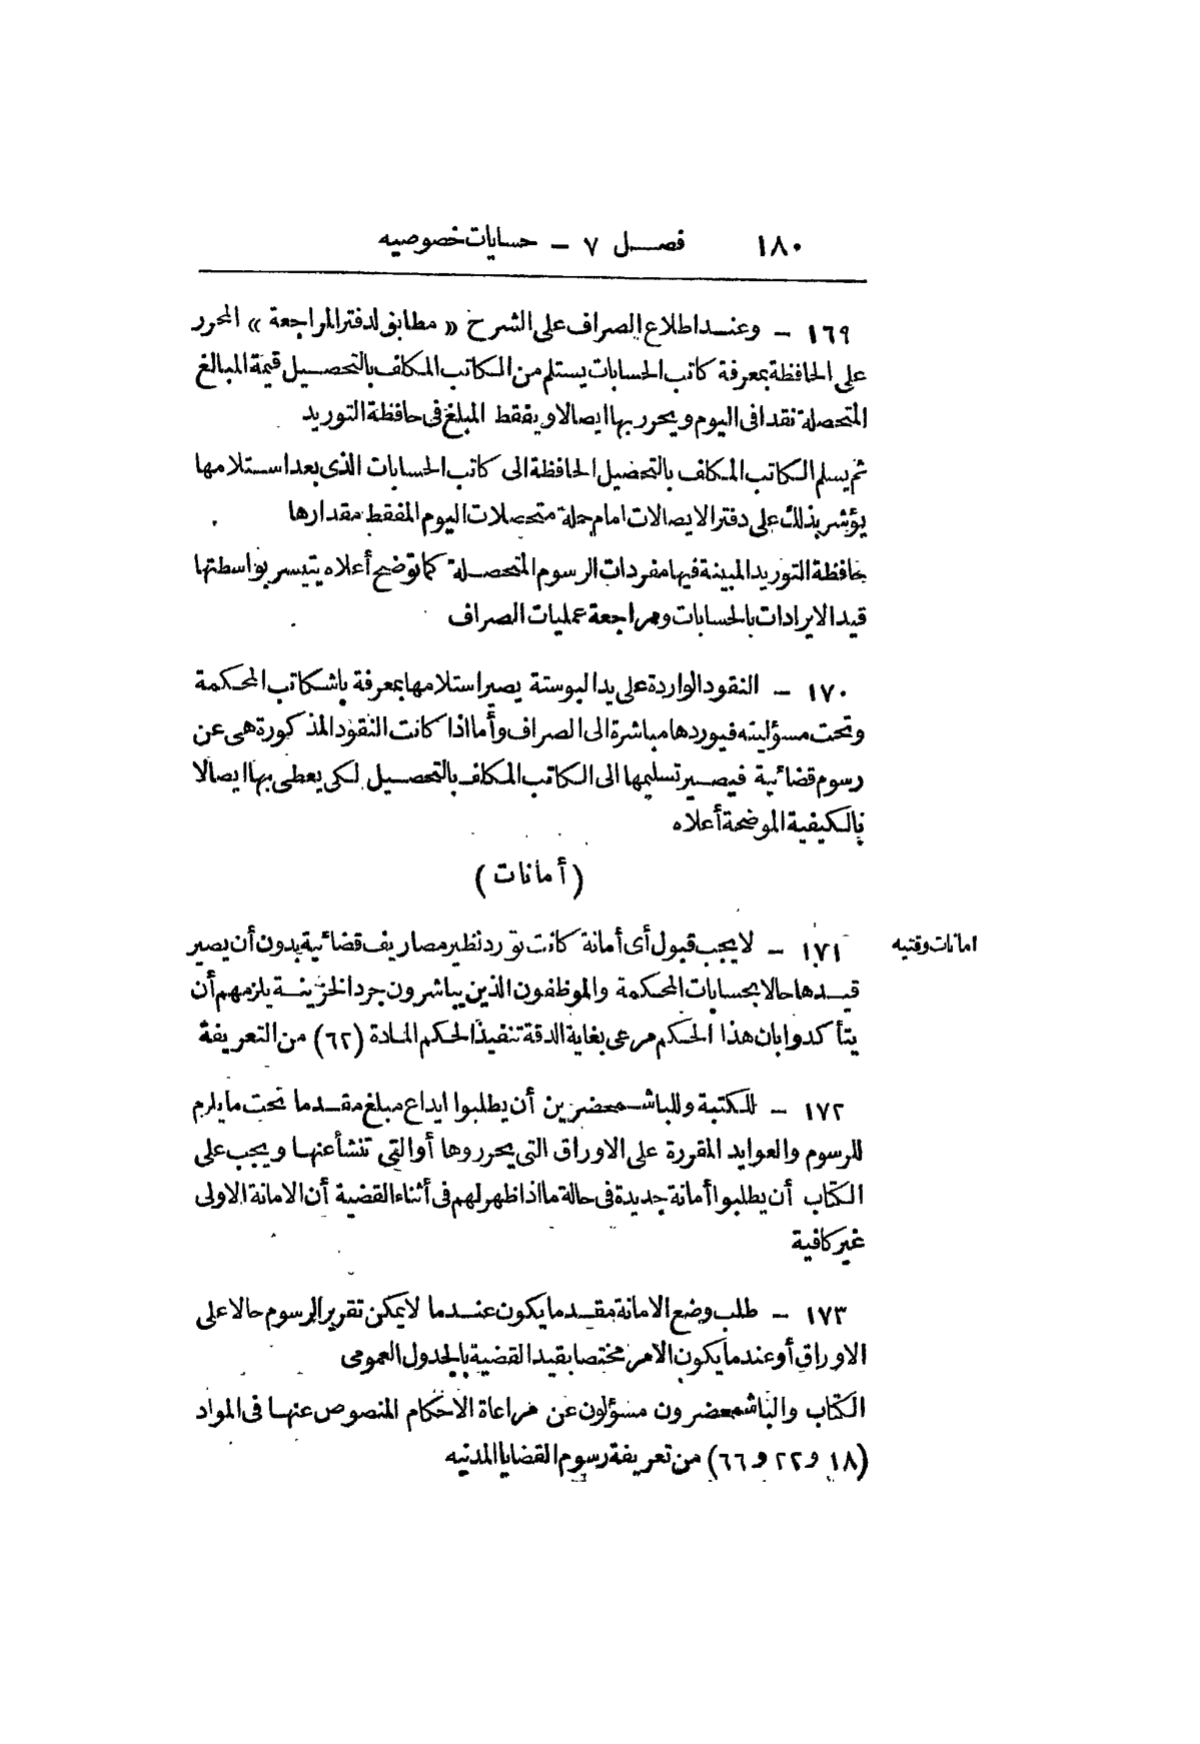 ١٨٠ فصل ٧ - حسابات خصوصيه
١٦٩ - وعند اطلاع الصراف على الشرح « مطابق لدفتر المراجعة » المحرر
على الحافظة بمعرفة كاتب الحسابات يستلم من الكاتب المكلف بالتحصيل قيمة المبالغ
المتحصلة نقدا فى اليوم ويحرر بها ايصالا ويفقط المبلغ فى حافظة التوريد
ثم يسلم الكاتب المكلف بالتحصيل الحافظة الى كاتب الحسابات الذى بعد استلامها
يؤشر بذلك على دفتر الايصالات امام جملة متحصلات اليوم المفقط مقدارها
بحافظة التوريد المبينة فيها مفردات الرسوم المتحصلة كما توضح أعلاه يتيسر بواسطتها
قيد الايرادات بالحسابات ومراجعة عمليات الصراف
١٧٠ - النقود الواردة على يد البوستة يصير استلامها بمعرفة باشكاتب المحكمة
وتحت مسؤليته فيوردها مباشرة الى الصراف وأما اذا كانت النقود المذكورة هى عن
رسوم قضائية فيصير تسليمها الى الكاتب المكلف بالتحصيل لكى يعطى بها ايصالا
بالكيفية الموضحة أعلاه
(أمانات)
امانات وقتيه
١٧١ - لا يجب قبول أى أمانة كانت تورد نظير مصاريف قضائية بدون أن يصير
قيدها حالا بحسابات المحكمة والموظفون الذين يباشرون جرد الخزينة يلزمهم أن
يتأكدوا بان هذا الحكم مرعى بغاية الدقة تنفيذا لحكم المادة (٦٢) من التعريفة
١٧٢ - للكتبة وللباشمحضرين أن يطلبوا ايداع مبلغ مقدما تحت ما يلزم
للرسوم والعوايد المقررة على الاوراق التى يحرروها أو التى تنشأ عنها ويجب على
الكتاب أن يطلبوا أمانة جديدة فى حالة ما اذا ظهر لهم فى أثناء القضية أن الامانة الاولى
غير كافية
١٧٣ - طلب وضع الامانة مقدما يكون عندما لا يمكن تقرير الرسوم حالا على
الاوراق أو عندما يكون الامر مختصا بقيد القضية بالجدول العمومى
الكتاب والباشمحضرون مسؤلون عن مراعاة الاحكام المنصوص عنها فى المواد
(١٨ و ٢٢ و ٦٦) من تعريفة رسوم القضايا المدنيه